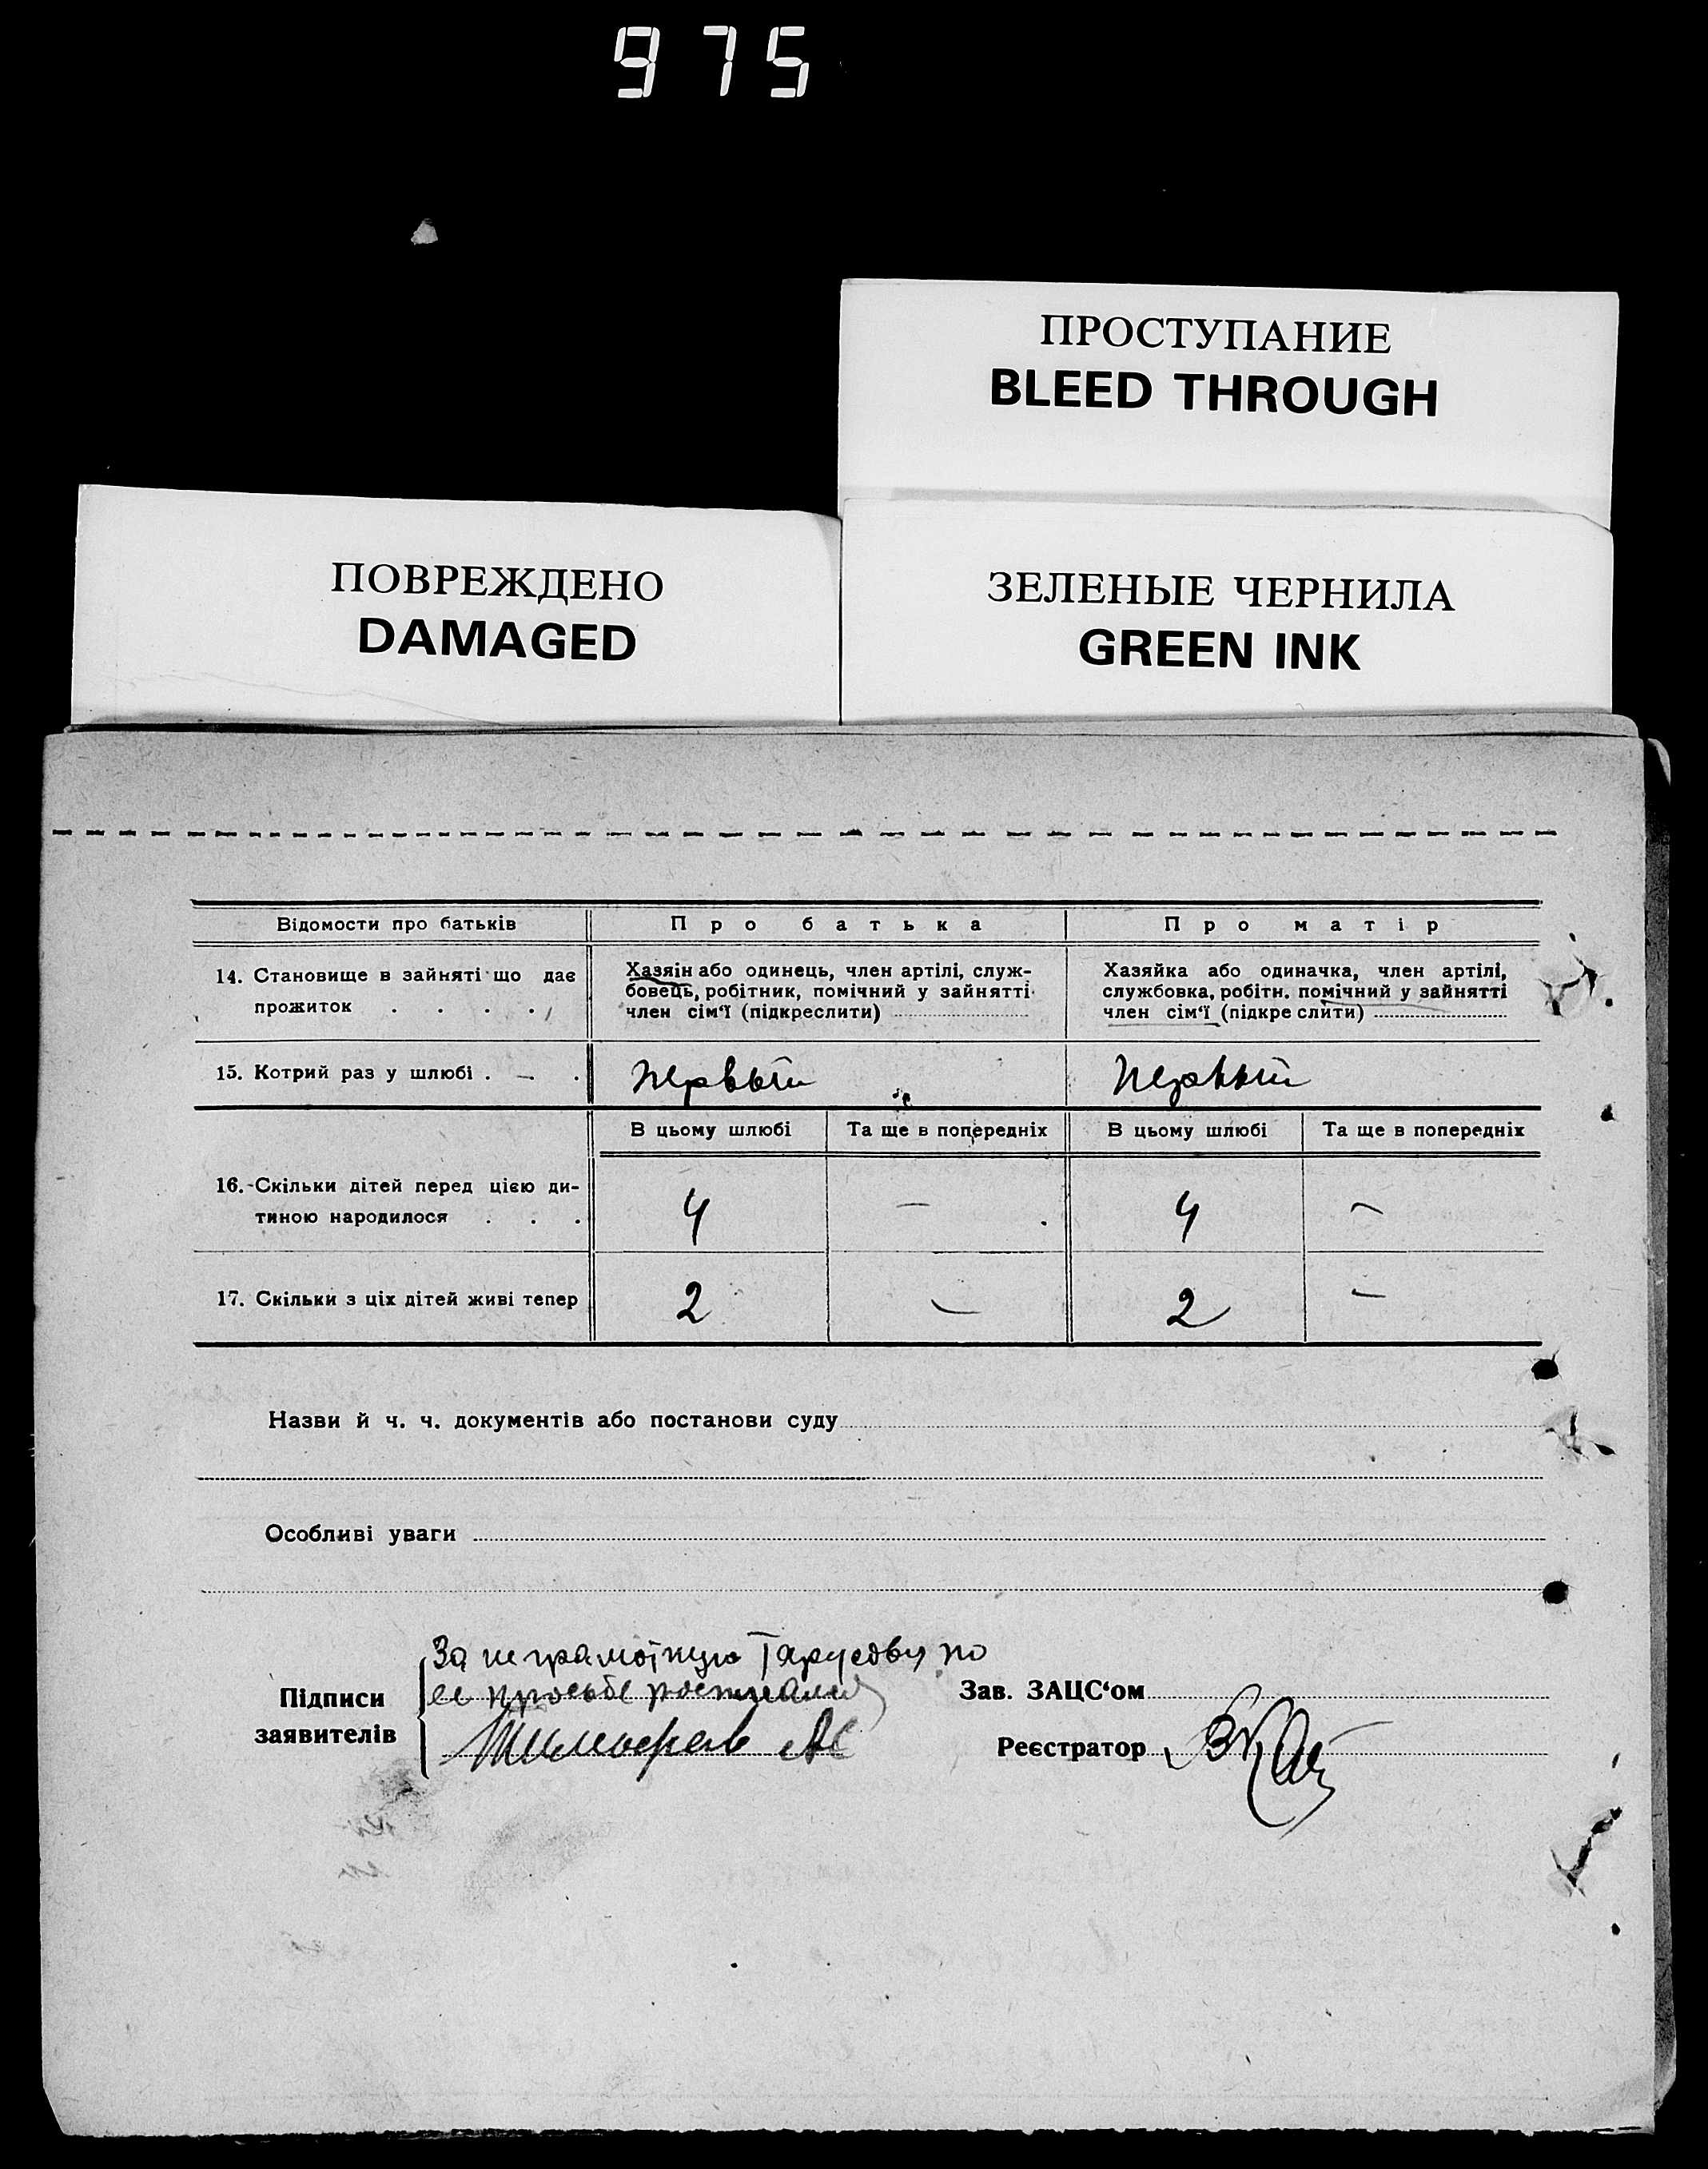 975
ПРОСТУПАНИЕ
BLEED THROUGH
ПОВРЕЖДЕНО
DAMAGED
ЗЕЛЕНЫЕ ЧЕРНИЛА
GREEN INK
Відомости про батьків Про батька Про матір
14. Становище в зайняті що дає
прожиток . . . .
Хазяїн або одинець, член артілі, служ-
бовець, робітник, помічний у зайнятті
член сім'ї (підкреслити)
Хазяйка або одиначка, член артілі,
службовка, робітн. помічний у зайнятті
член сім'ї (підкреслити)
15. Котрий раз у шлюбі . — . первый первый
В цьому шлюбі Та ще в попередніх В цьому шлюбі Та ще в попередніх
16. Скільки дітей перед цією ди-
тиною народилося . . . 4 — 4 —
17. Скільки з ціх дітей живі тепер 2 — 2 —
Назви й ч. ч. документів або постанови суду
Особливі уваги
Підписи
заявителів
За неграмотную по
ее просьбе
Зав. ЗАЦС'ом
Реєстратор